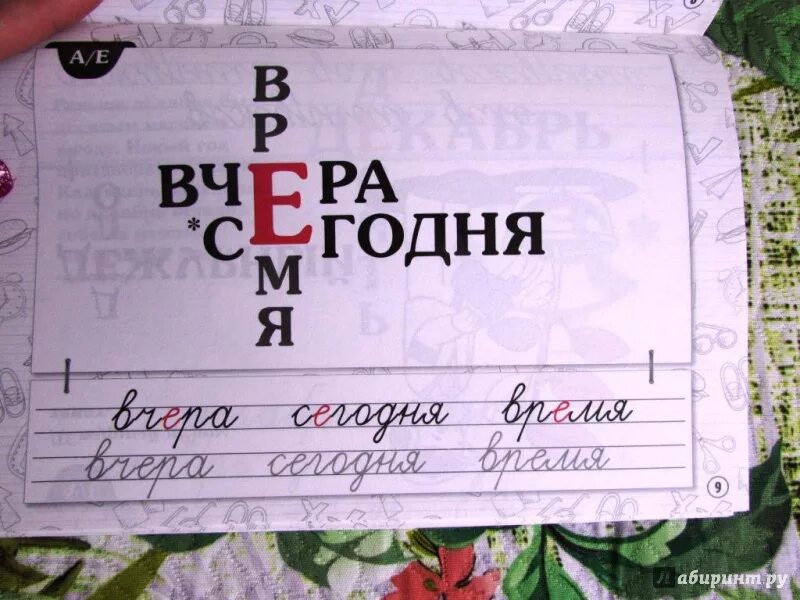 А/Е
ВРЕМЯ
ВЧЕРА
*СЕГОДНЯ
вчера сегодня время
вчера сегодня время
9
Лабиринт.ру